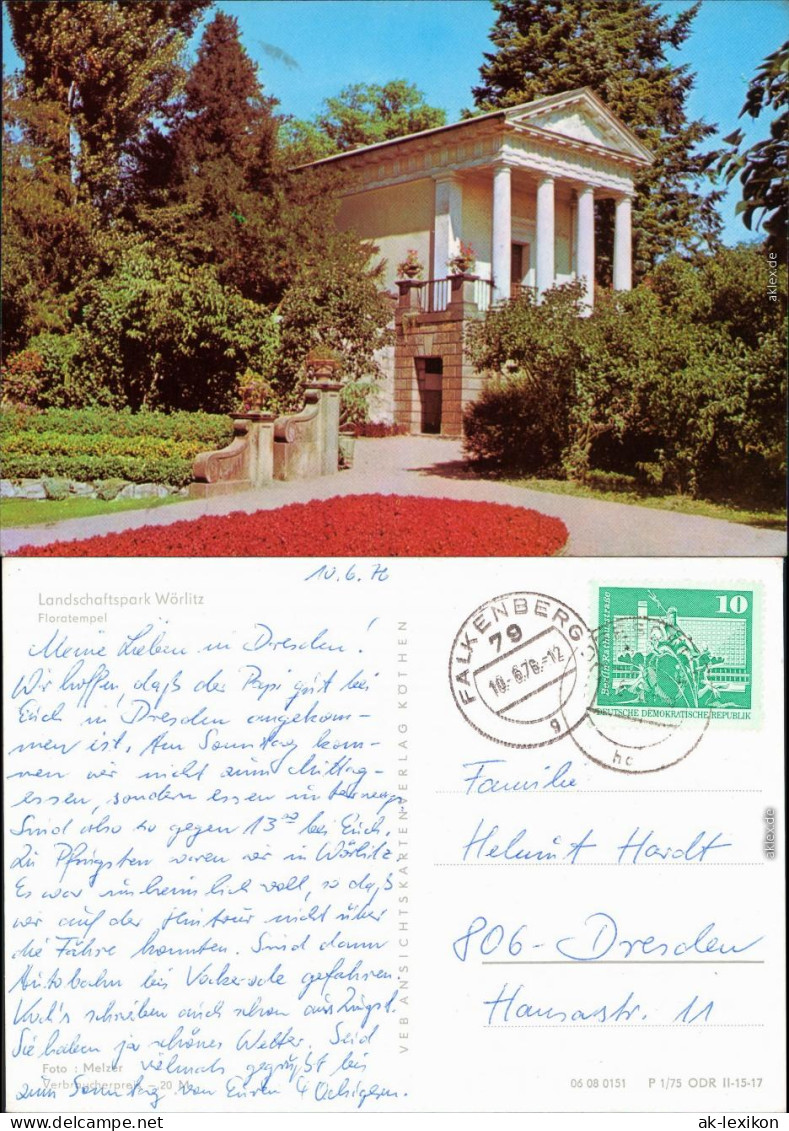 aklex.de
10.6.76
Landschaftspark Wörlitz
Floratempel
Meine Lieben in Dresden!
Wir hoffen, daß der Papi gut bei
Euch in Dresden angekom-
men ist. Am Sonntag kom-
men wir nicht zum Mittag-
essen, sondern essen unterwegs
Sind also so gegen 13⁰⁰ bei Euch.
Zu Pfingsten waren wir in Wörlitz
Es war unheimlich voll, so daß
wir auf der Hintour nicht über
die Fähre konnten. Sind dann
Autobahn bis gefahren.
schreiben auch schon aus
Sie haben ja schönes Wetter. Seid
Foto : Melzer vielmals gegrüßt bis
Verbraucherpreis –20 M
zum Sonntag von Euren 4
VEB ANSICHTSKARTENVERLAG KÖTHEN
FALKENBERG
79
10.-6.76.-12
g
hc
10
Berlin-Rathausstraße
DEUTSCHE DEMOKRATISCHE REPUBLIK
Familie
Helmut Hardt
806-Dresden
Hansastr. 11
06 08 0151 P 1/75 ODR II-15-17
aklex.de
ak-lexikon